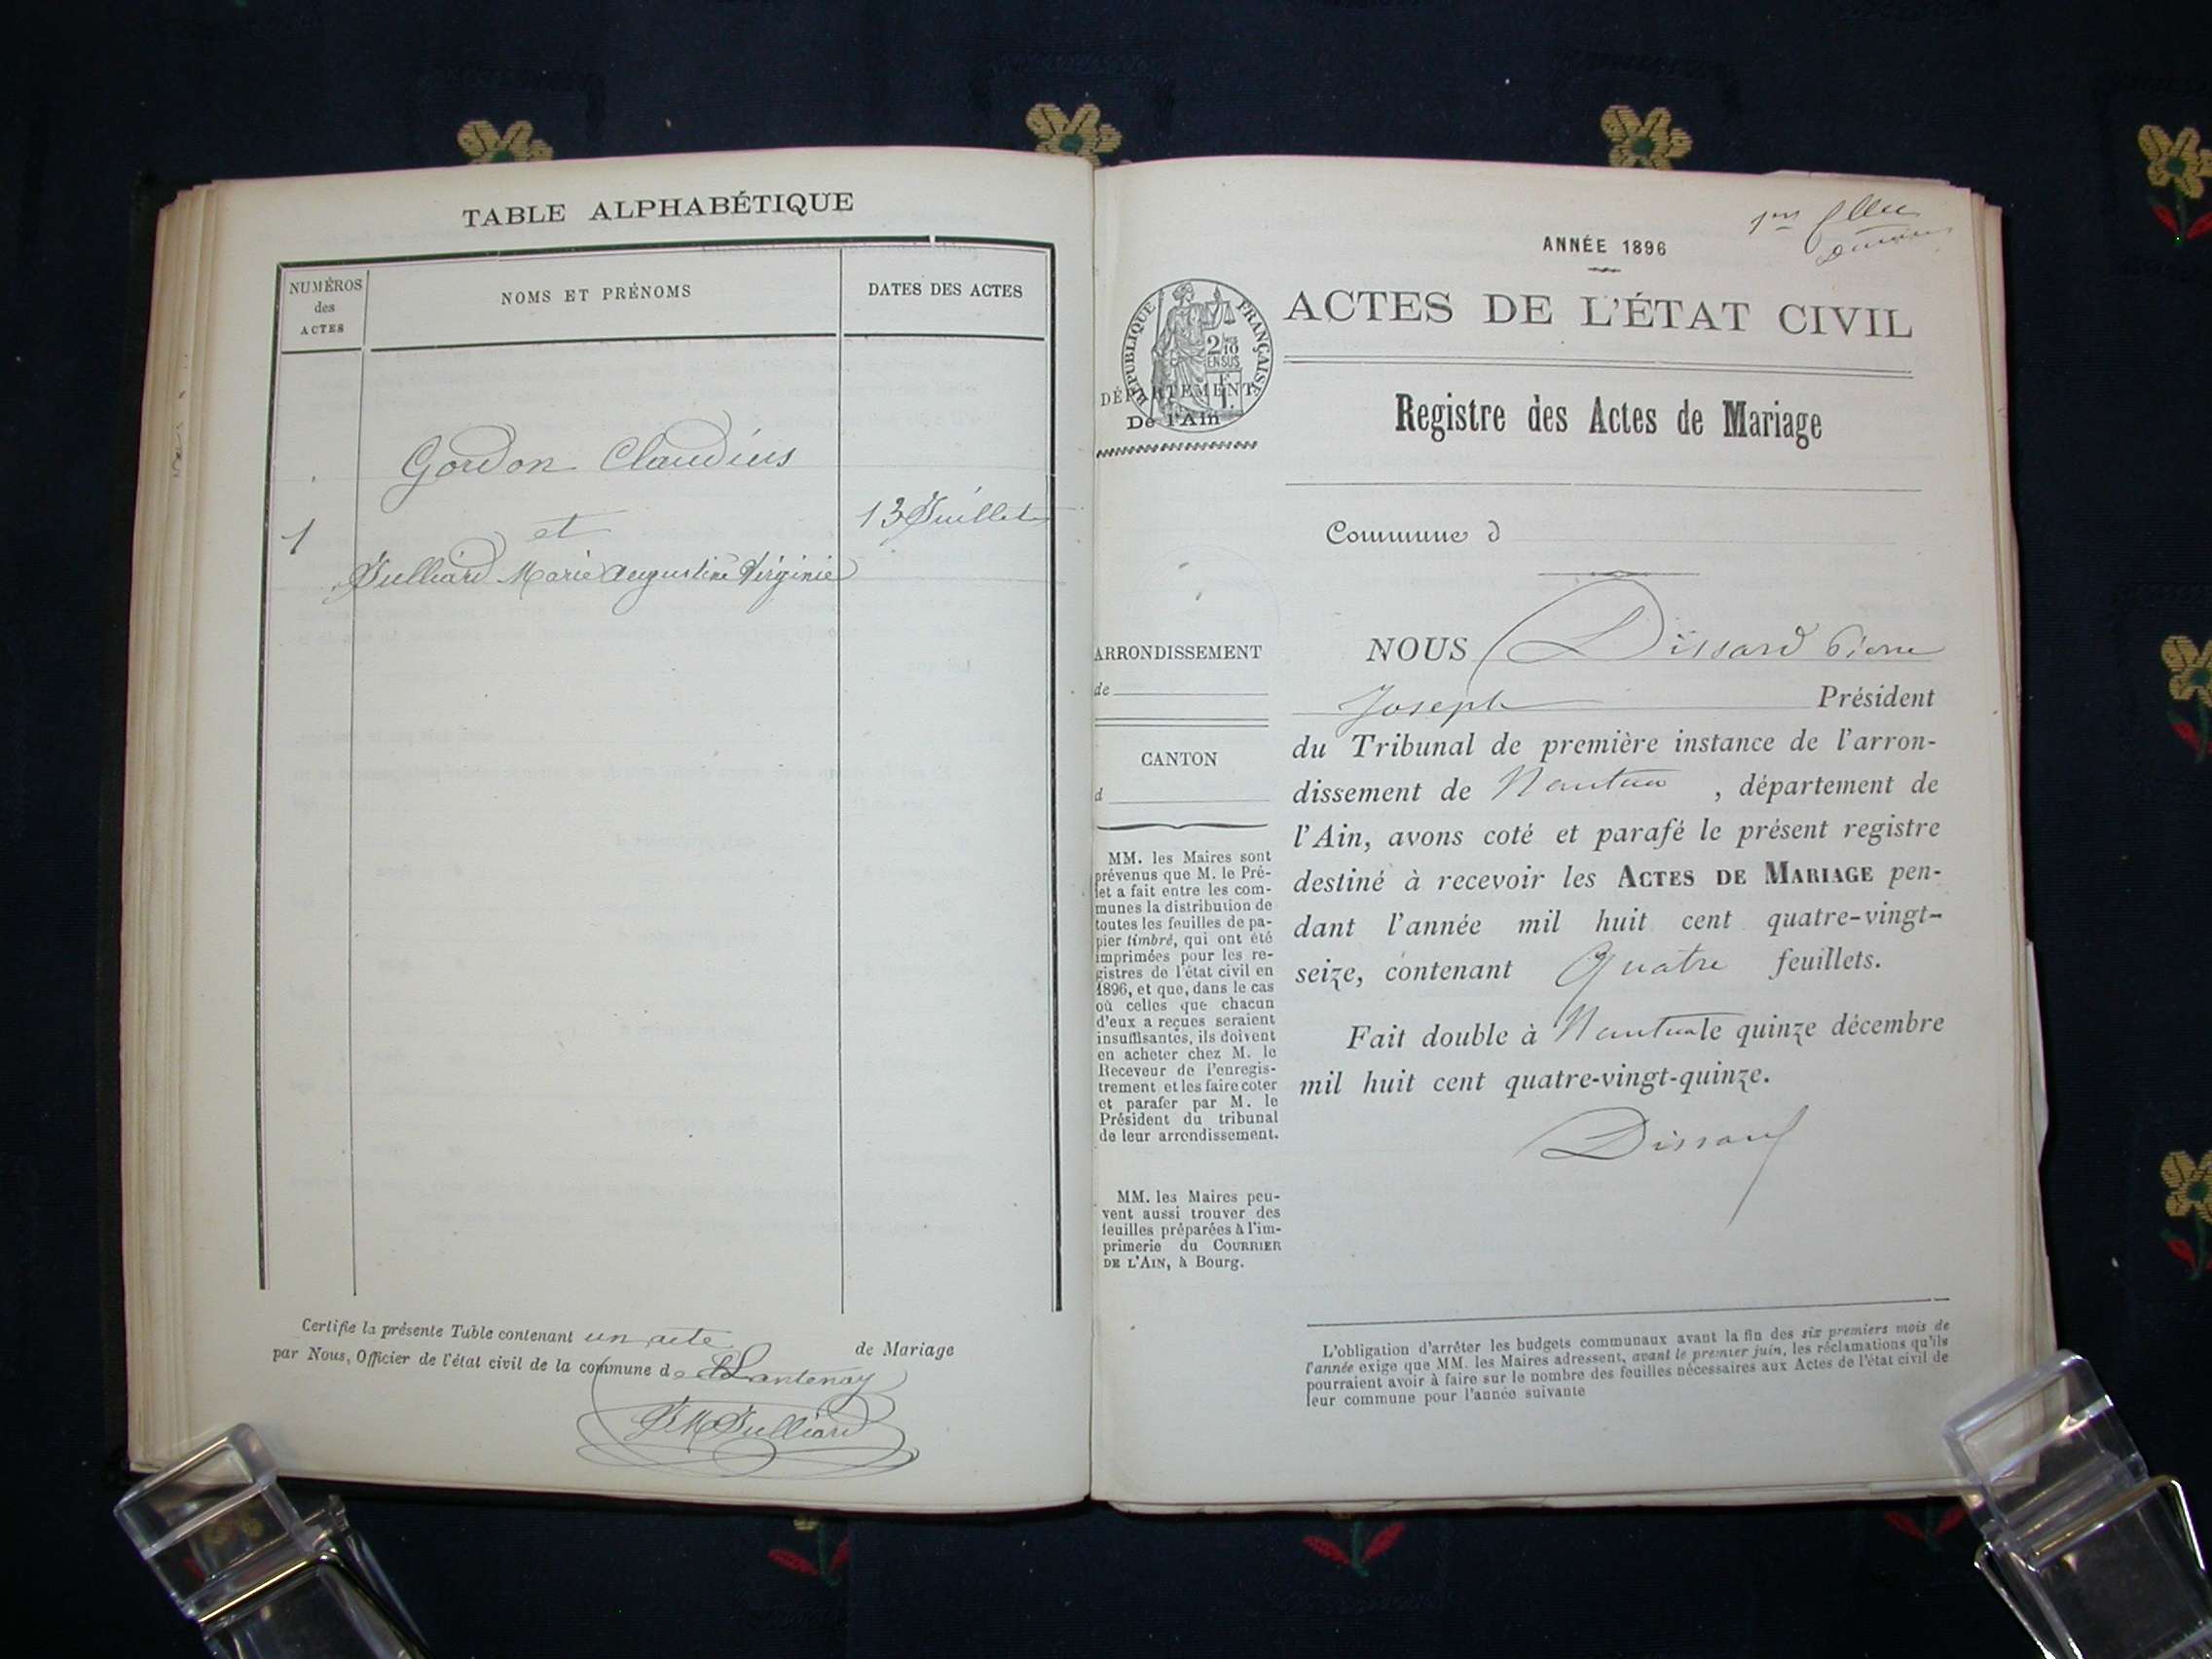 TABLE ALPHABÉTIQUE
NUMÉROS
des
ACTES
NOMS ET PRÉNOMS
DATES DES ACTES
Gordon Claudius
1
et
13 Juillet
Julliard Marie Augustine Virginie
Certifie la présente Table contenant un acte de Mariage
par Nous, Officier de l'état civil de la commune de Lantenay
JM Julliard
1er
ANNÉE 1896
RÉPUBLIQUE FRANÇAISE
2/10
EN SUS
DÉPARTEMENT
De l'Ain
ACTES DE L'ÉTAT CIVIL
Registre des Actes de Mariage
Commune d
ARRONDISSEMENT
de
CANTON
d
MM. les Maires sont
prévenus que M. le Pré-
fet a fait entre les com-
munes la distribution de
toutes les feuilles de pa-
pier timbré, qui ont été
imprimées pour les re-
gistres de l'état civil en
1896, et que, dans le cas
où celles que chacun
d'eux a reçues seraient
insuffisantes, ils doivent
en acheter chez M. le
Receveur de l'enregis-
trement et les faire coter
et parafer par M. le
Président du tribunal
de leur arrondissement.
MM. les Maires peu-
vent aussi trouver des
feuilles préparées à l'im-
primerie du COURRIER
DE L'AIN, à Bourg.
NOUS Dissard Pierre
Joseph Président
du Tribunal de première instance de l'arron-
dissement de Nantua, département de
l'Ain, avons coté et parafé le présent registre
destiné à recevoir les ACTES DE MARIAGE pen-
dant l'année mil huit cent quatre-vingt-
seize, contenant Quatre feuillets.
Fait double à Nantua le quinze décembre
mil huit cent quatre-vingt-quinze.
Dissard
L'obligation d'arrêter les budgets communaux avant la fin des six premiers mois de
l'année exige que MM. les Maires adressent, avant le premier juin, les réclamations qu'ils
pourraient avoir à faire sur le nombre des feuilles nécessaires aux Actes de l'état civil de
leur commune pour l'année suivante